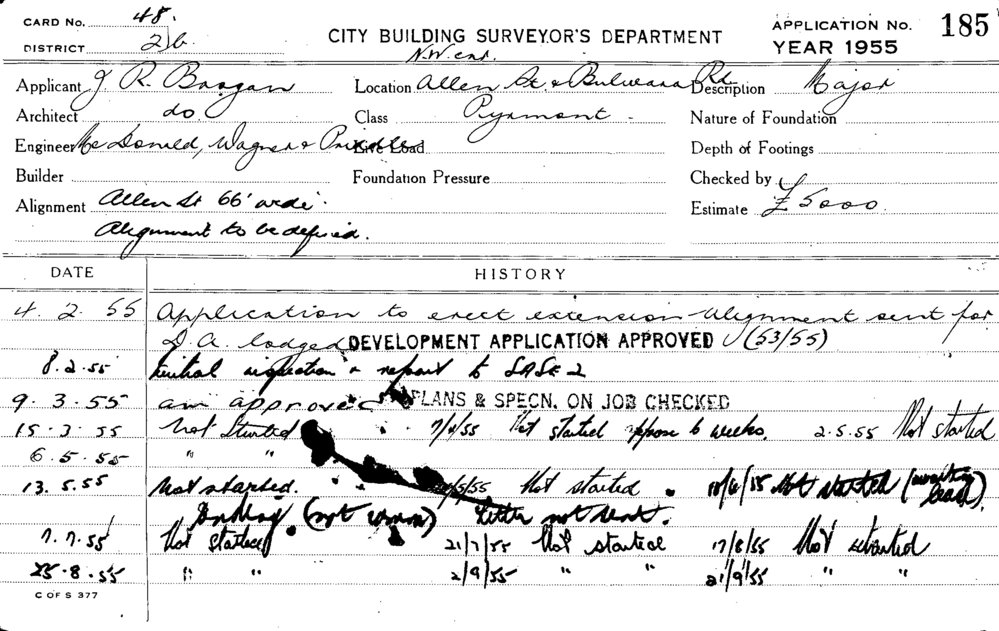 CARD No. 48.
DISTRICT 2b
CITY BUILDING SURVEYOR'S DEPARTMENT
APPLICATION No. 185
YEAR 1955
N.W. cnr.
Applicant J R. Brogan Location Allen St. & Bulwara Rd Description Major
Architect do Class Pyrmont - Nature of Foundation
Engineer McDonald, Wagner & Priddle Live Load Depth of Footings
Builder Foundation Pressure Checked by
Alignment Allen St 66' wide. Estimate £5000
Alignment to be defined.
DATE HISTORY
4. 2. 55 Application to erect extension - alignment sent for
D.A. lodged DEVELOPMENT APPLICATION APPROVED (53/55)
8.2.55 Initial inspection & report to
9. 3. 55 approved PLANS & SPECN. ON JOB CHECKED
15. 3. 55 Not Started 7/4/55 Not started 6 weeks. 2.5.55 Not started
6.5.55 " "
13.5.55 Not started. /5/55 Not started 10/6/55 Not started (awaiting
lease).
(not) Letter not sent.
7.7.55 Not started 21/7/55 Not started 17/8/55 Not started
25.8.55 " " 2/9/55 " " 21/9/55 " "
C OF S 377